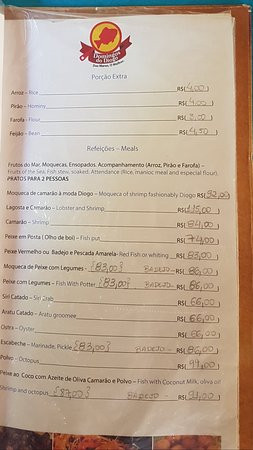 Domingos
do Diogo
Porção Extra
Arroz - Rice R$( 4,00 )
Pirão - Hominy R$( 4,00 )
Farofa - Flour R$( 3,00 )
Feijão - Bean R$( 4,50 )
Refeições - Meals
Frutos do Mar, Moquecas, Ensopados. Acompanhamento (Arroz, Pirão e Farofa) -
Fruits of the Sea, Fish stew, soaked. Attendance (Rice, manioc meal and especial flour).
PRATOS PARA 2 PESSOAS
Moqueca de camarão à moda Diogo - Moqueca of shrimp fashionably Diogo R$( 92,00 )
Lagosta e Camarão - Lobster and Shrimp R$( 115,00 )
Camarão - Shrimp R$( 84,00 )
Peixe em Posta ( Olho de boi) - Fish put R$( 74,00 )
Peixe Vermelho ou Badejo e Pescada Amarela- Red Fish or whiting R$( 83,00 )
Moqueca de Peixe com Legumes - {83,00} BADEJO - R$( 86,00 )
Moqueca com Legumes - Fish With Potter {83,00} BADEJO - R$( 86,00 )
Siri Catado - Siri Grab R$( 66,00 )
Aratu Catado - Aratu groomee R$( 66,00 )
Ostra - Oyster R$( 66,00 )
Escabeche - Marinade, Pickle {83,00} BADEJO - R$( 86,00 )
Polvo - Octopus R$( 99,00 )
Peixe ao Coco com Azeite de Oliva Camarão e Polvo - Fish with Coconut Milk, oliva oil
Shrimp and octopus {87,00} BADEJO - R$( 91,00 )